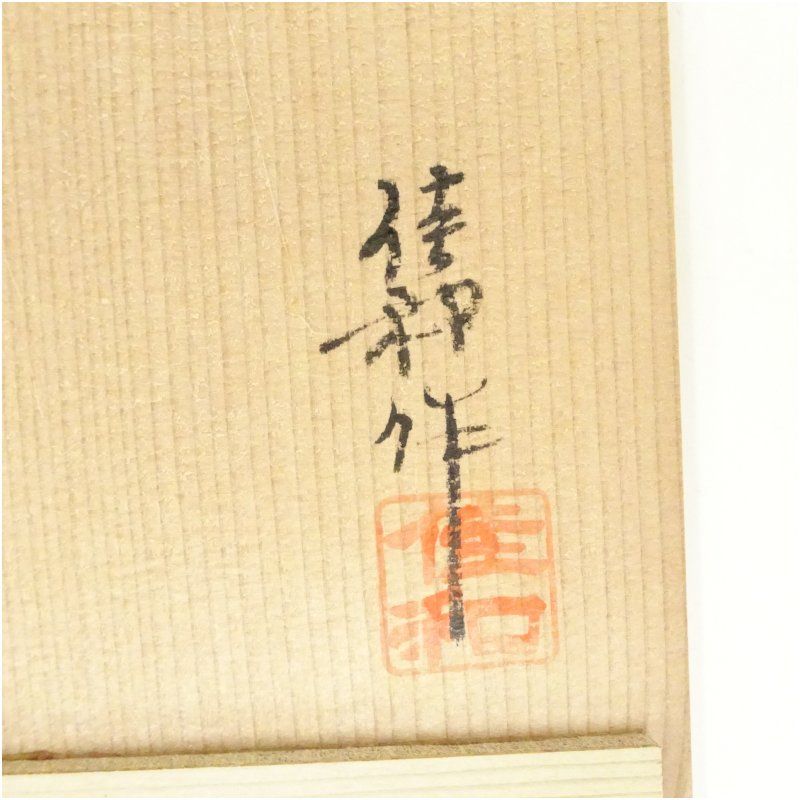 佳和作
佳和